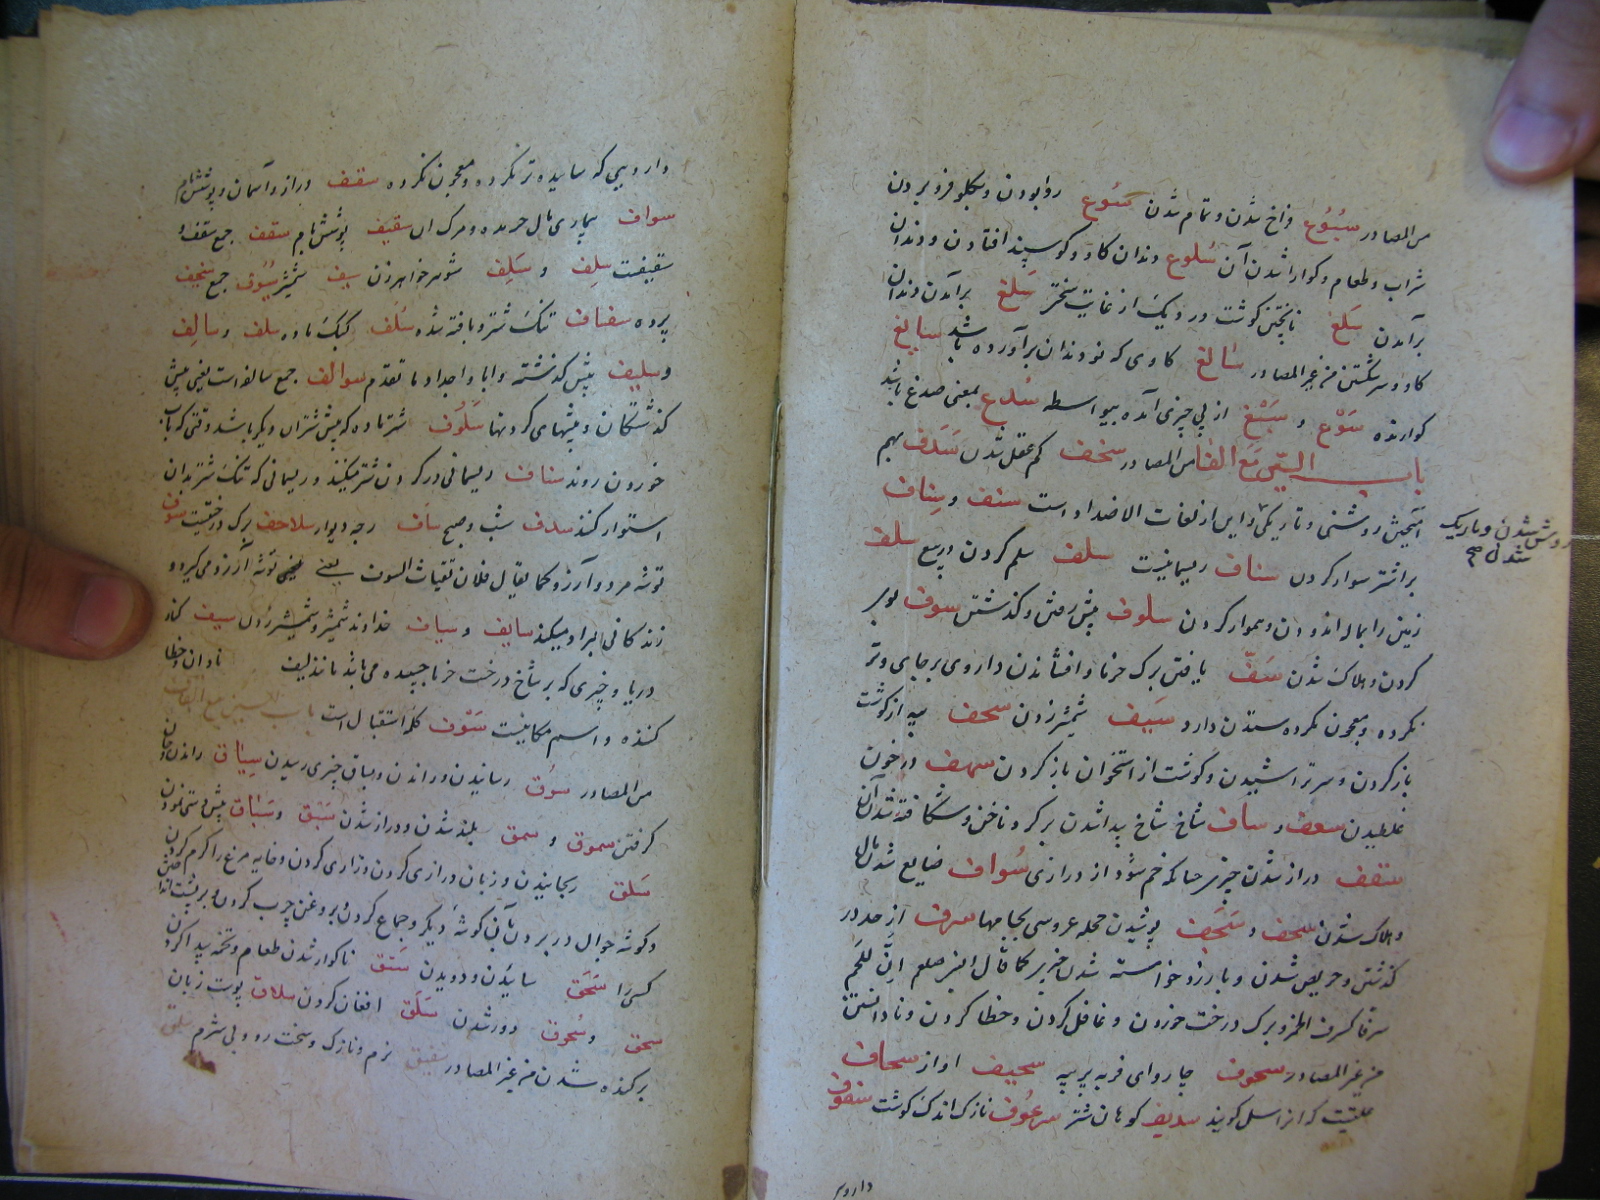 من المصادر سُبُوغ فراخ شدن و تمام شدن سَوْغ روا بودن و بگلو فرو بردن
شراب و طعام و گوارا شدن آن سُلوغ دندان گاو و گوسپند افتادن و دندان
برآمدن سَلغ ناپختن گوشت در دیک از غایت سختر سَلغ برآمدن دندان
گاو و سر شکستن من غیر المصادر سَالغ گاوی که نو دندان برآورده باشد سایغ
گوارنده سَوْغ و سَیْغ از پی چیزی آمده بیواسطه سُدغ بمعنی صدغ باشد
باب السّین مَعَ الفا من المصادر سخف کم عقل شدن سَدَف بهم
آمیختن روشنی و تاریکی و این از لغات الاضداد است سنف و سِناف
روشن شدن و تاریک شدن صح
بر اشتر سوار کردن سناف ریسمانیست سلف سلم کردن در بیع سلف
زمین را بماله اندودن و هموار کردن سلوف پیش رفتن و گذشتن سوف بوی
کردن و هلاک شدن سَفّ بافتن برک خرما و افشاندن داروی بر جای و تر
نکرده و معجون نکرده ستدن دارو سَیف شمشیر زدن سحف پیه از گوشت
باز کردن و سر تراشیدن و گوشت از استخوان باز کردن سهف در خون
غلطیدن سعف و ساف شاخ شاخ پیدا شدن بر کرد ناخن و شکافته شدن آن
سقف دراز شدن چیزی چنانکه خم شود از درازی سُواف ضایع شدن مال
و هلاک شدن سجف و سَجَف پوشیدن حجله عروسی بجامها سرف از حد در
گذشتن و حریص شدن و بارزو خواسته شدن چیز کما قال النبر صلعم انّ للحم
سرفا کسرف الخمر و برک درخت خوردن و غافل کردن و خطا کردن و نادانستن
من غیر المصادر سحوف چاروای فربه پر پیه سحیف اواز سحاف
علتیست که انرا سل گویند سدیف کوهان شتر سرعوف نازک اندک گوشت سفوف
دارویی
دارویی که ساییده تر نکرده و معجون نکرده سقف دراز و آسمان و پوشش بام
سواف بیماری مال مرک ان سقیف پوشش بام سقف جمع سقف و
سقیفت سلِف و سَلِف شوهر خواهر زن سیف شمشیر سُیُوف جمع سجف
پرده سفناف تنک شتر و بافته شده سُلَف کبک ماده سلف و سالِف
و سلیف پیش گذشته و ابا و اجداد ما تقدم سوالف جمع سالف است یعنی پیش
گذشتگان و پیشهای گردنها سَلُوف شتر ماده که پیش شتران دیکر باشد وقتی که باب
خوردن روند سناف ریسمانی در گردن شتر میکنند و ریسمانی که تنک شتر بدان
استوار کنند سدف شب و صبح سَاف رجه دیوار سلاحف برک درختیست سوف
توشه مرد و آرزو کما یقال فلان تقیات السوف یعنی توشه آرزو می گیرد و
زندگانی البراو میکند سایف و سیاف خداوند شمشیر و شمشیر زدن سیف کناره
دریا و چیزی که بر شاخ درخت خرما چسپیده می باشد مانند لیف نادان و خطا
کننده و اسم مکانیست سَوْف کلمه استقبال است باب السین مع القاف
من المصادر سَوْق رسانیدن و راندن و بساق چیزی رسیدن سِیاق راندن و جان
گرفتن سموق و سمق بلند شدن و دراز شدن سَبْق و سَبَاق پیش دستی نمودن
سَلق رنجانیدن و زبان درازی کردن و زاری کردن و خایه مرغ را گرم کردن
و گوشه جوال در بردن بآن گوشه دیگر و جماع کردن و بروغن چرب کردن و بر پشت انداختن
کسی را سَحَق ساییدن و دویدن سَنَق ناگوار شدن طعام و تخمه پیدا کردن
سحق و سُحوق دور شدن سَلَق افغان کردن سلاق پوست زبان
بر کنده شدن من غیر المصادر سَمَق نرم و نازک و سخت رو و بی شرم سلق